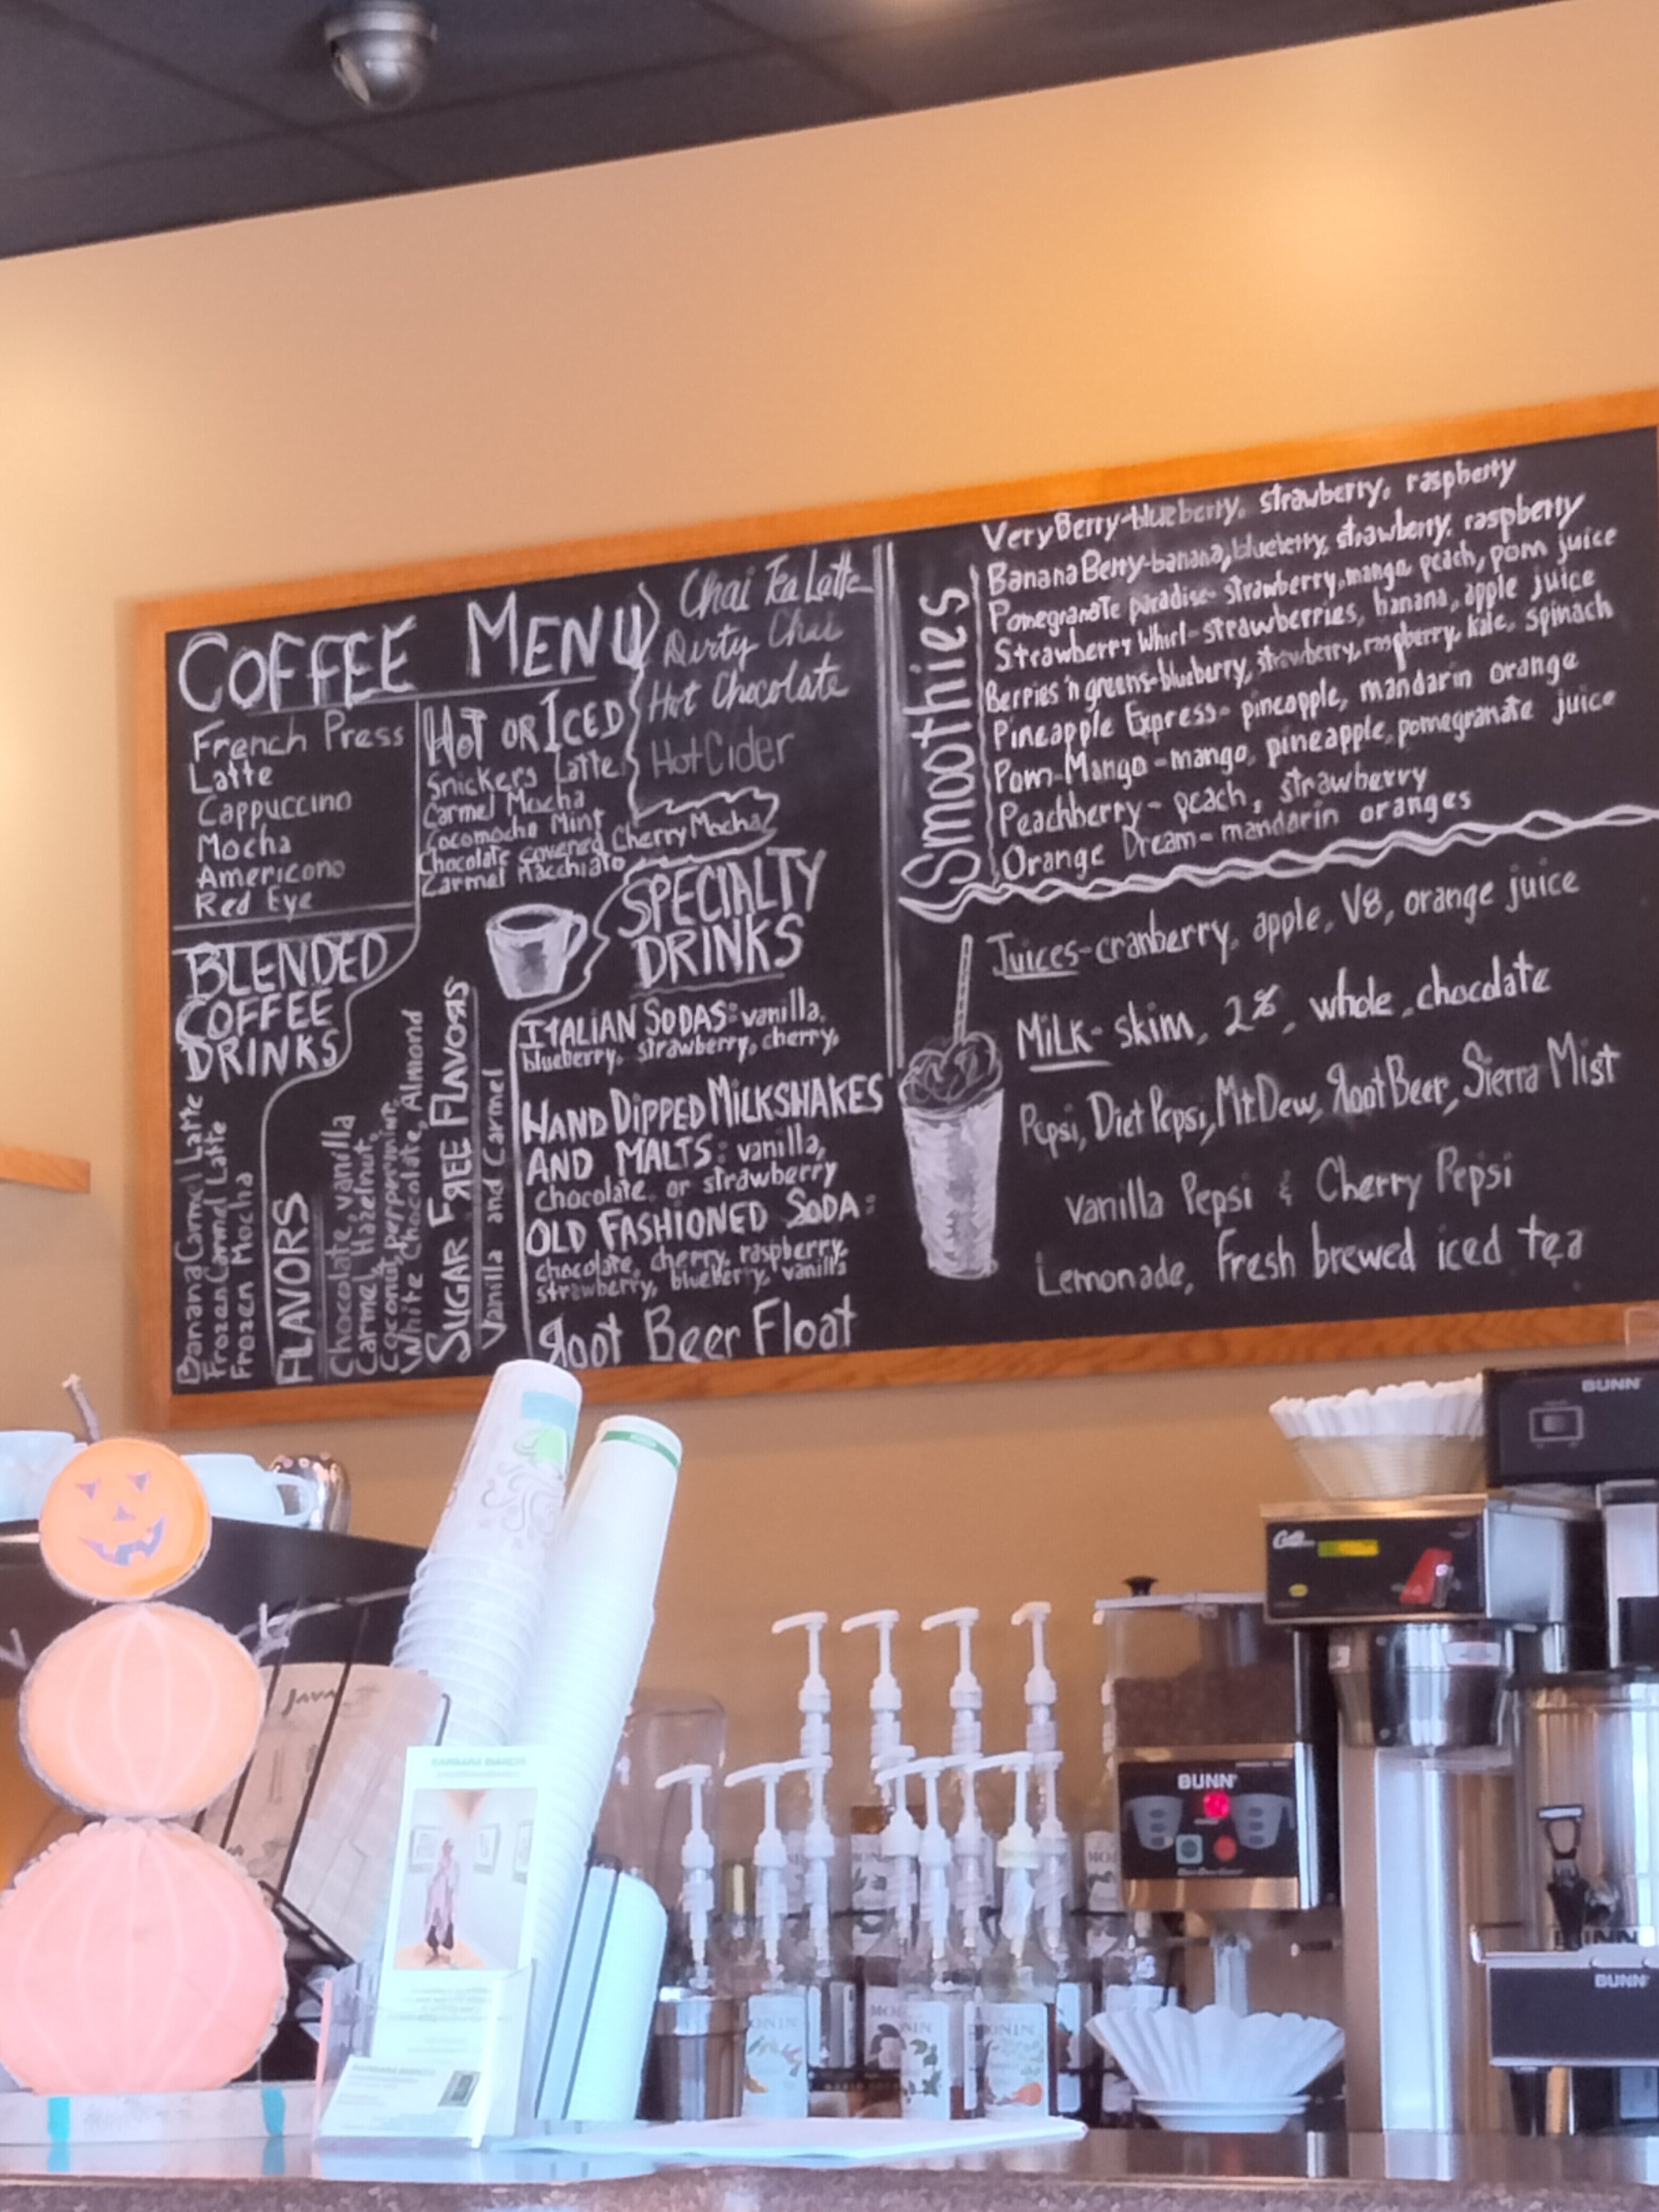 COFFEE MENU
French Press
Latte
Cappuccino
Mocha
Americano
Red Eye
HOT OR ICED
Snickers Latte
Carmel Mocha
Cocomocha Mint
Chocolate covered Cherry Mocha
Carmel Macchiato
Chai Tea Latte
Dirty Chai
Hot Chocolate
Hot Cider
BLENDED
COFFEE
DRINKS
Banana Carmel Latte
Frozen Carmel Latte
Frozen Mocha
FLAVORS
Chocolate, vanilla
Carmel, Hazelnut,
Coconut, peppermint,
White Chocolate, Almond
SUGAR FREE FLAVORS
Vanilla and Carmel
SPECIALTY
DRINKS
ITALIAN SODAS: vanilla,
blueberry, strawberry, cherry,
HAND DIPPED MILKSHAKES
AND MALTS: vanilla,
chocolate, or strawberry
OLD FASHIONED SODA:
chocolate, cherry, raspberry,
strawberry, blueberry, vanilla
Root Beer Float
Smoothies
Very Berry-blueberry, strawberry, raspberry
Banana Berry-banana, blueberry, strawberry, raspberry
Pomegranate paradise- strawberry, mango, peach, pom juice
Strawberry Whirl-strawberries, banana, apple juice
Berries 'n greens-blueberry, strawberry, raspberry, kale, spinach
Pineapple Express- pineapple, mandarin orange
Pom-Mango-mango, pineapple, pomegranate juice
Peachberry- peach, strawberry
Orange Dream-mandarin oranges
Juices-cranberry, apple, V8, orange juice
MILK- skim, 2%, whole, chocolate
Pepsi, Diet Pepsi, Mt Dew, Root Beer, Sierra Mist
Vanilla Pepsi & Cherry Pepsi
Lemonade, Fresh brewed iced tea
BUNN
JAVA
BUNN
BUNN